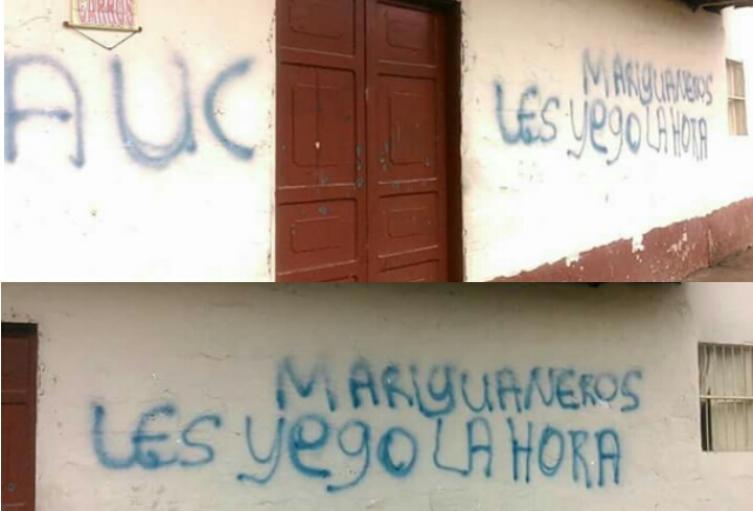 CARROS
AUC
MARIGUANEROS
LES YEGO LA HORA
MARIGUANEROS
LES YEGO LA HORA